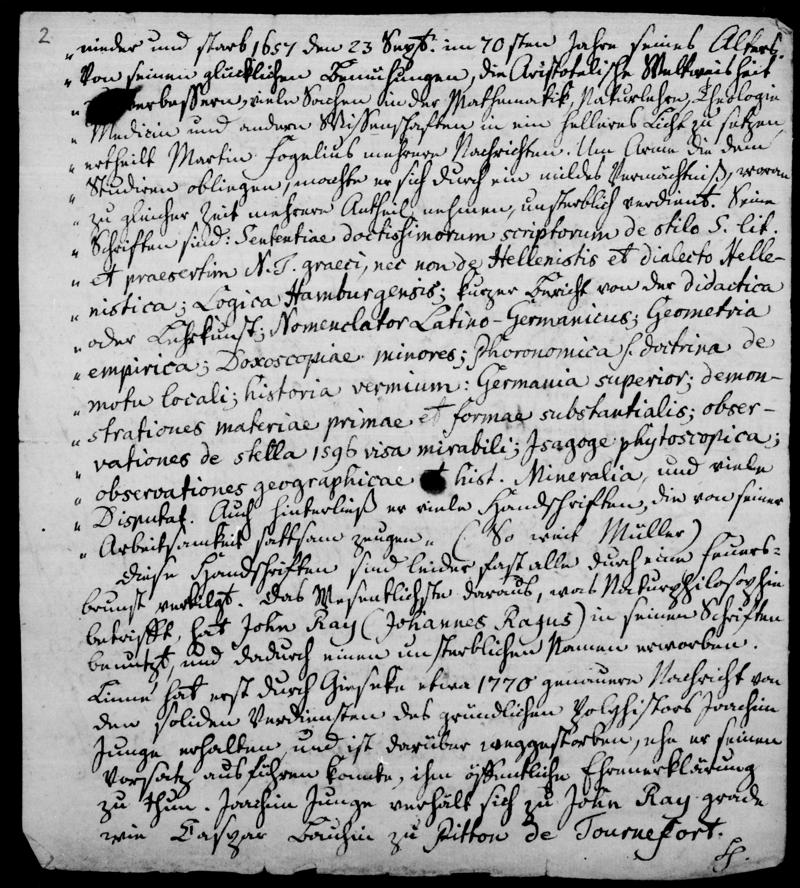 2
„ nieder und starb 1657 den 23 Sept. im 70sten Jahre seines Alters.
„ Von seinen glücklichen Bemühungen, die Aristotelische Weltweisheit
„ verbessern, viele Sachen in der Mathematik, Naturlehre, Theologie
„ Medicin und andern Wissenschaften in ein helleres Licht zu setzen,
„ ertheilt Martin Fogelius mehrere Nachrichten. Um Arme die dem
„ Studiren obliegen, machte er sich durch ein mildes Vermächtniß, woran
„ zu gleicher Zeit mehrere Antheil nehmen, unsterblich verdient. Seine
„ Schriften sind: Sententiae doctissimorum scriptorum de stilo S. lit.
„ et praesertim N. T. graeci, nec non de Hellenistis et dialecto Helle-
„ nistica; Logica Hamburgensis; kurzer Bericht von der didactica
„ oder Lehrkunst; Nomenclator Latino-Germanicus; Geometria
„ empirica; Doxoscopiae minores; Phoronomica s. doctrina de
„ motu locali; historia vermium: Germania superior; demon-
„ strationes materiae primae et formae substantialis; obser-
„ vationes de stella 1596 visa mirabili; Isagoge phytoscopica;
„ observationes geographicae et hist. Mineralia, und viele
„ Disputat. Auch hinterließ er viele Handschriften, die von seiner
„ Arbeitsamkeit sattsam zeugen. (So weit Müller)
Diese Handschriften sind leider fast alle durch eine Feuers-
brunst vertilgt. Das Wesentlichste daraus, was Naturphilosophie
betrifft, hat John Ray (Johannes Ragus) in seinen Schriften
benutzt, und dadurch einen unsterblichen Namen erworben.
Linné hat erst durch Gieseke etwa 1770 genauere Nachricht von
den soliden Verdiensten des gründlichen Polyhistors Joachim
Junge erhalten und ist darüber weggestorben, ehe er seinen
Vorsatz ausführen konnte, ihm öffentliche Ehrenerklärung
zu thun. Joachim Junge verhält sich zu John Ray grade
wie Caspar Bauhin zu Pitton de Tournefort.